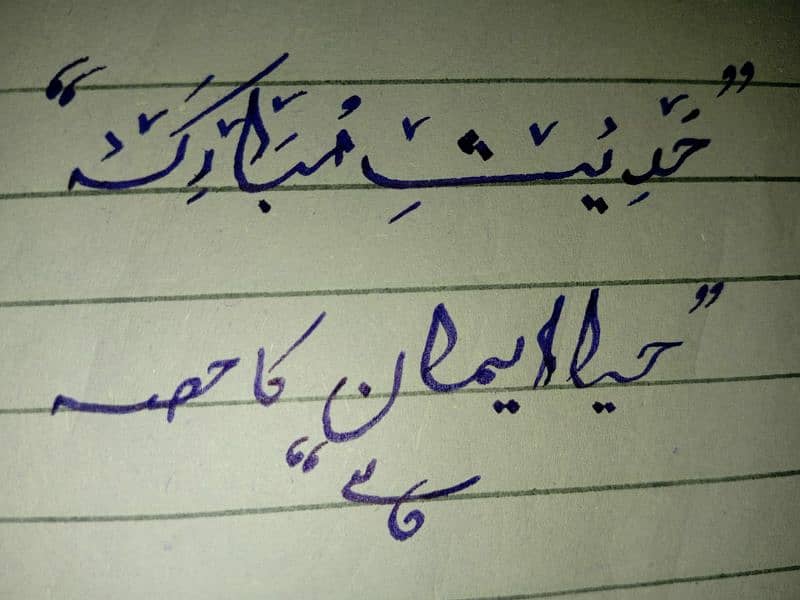 ”حَدِیثِ مُبَارَکہ“
”حیا ایمان کا حصہ
ہے“